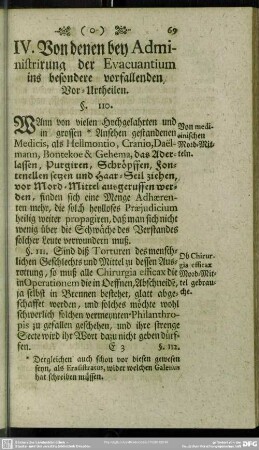 (o) 69
IV. Von denen bey Admi-
nistrirung der Evacuantium
ins besondere vorfallenden
Vor-Urtheilen.
§. 110.
WAnn von vielen Hochgelahrten und
in grossen * Ansehen gestandenen
Medicis, als Hellmontio, Cranio, Daël-
mann, Bontekoe & Gehema, das Ader-
lassen, Purgiren, Schröpffen, Fon-
tenellen setzen und Haar-Seil ziehen,
vor Mord-Mittel ausgeruffen wer-
den, finden sich eine Menge Adhæren-
ten mehr, die solch heylloses Præjudicium
heilig weiter propagiren, daß man sich nicht
wenig über die Schwäche des Verstandes
solcher Leute verwundern muß.
Von medi-
cinischen
Mord-Mit-
teln.
§. 111. Sind diß Torturen des mensch-
lichen Geschlechts und Mittel zu dessen Aus-
rottung, so muß alle Chirurgia efficax die
in Operationem die in Oeffnen, Abschneide,
ja selbst in Brennen bestehet, glatt abge-
schaffet werden, und solches möchte wohl
schwerlich solchen vermeynten Philanthro-
pis zu gefallen geschehen, und ihre strenge
Secte wird ihr Wort dazu nicht geben dürf-
fen.
Ob Chirur-
gia efficax
Mord-Mit-
tel gebrau-
che.
E 3 §. 112.
* Dergleichen auch schon vor diesen gewesen
seyn, als Erasistratus, wider welchen Galenus
hat schreiben müssen.